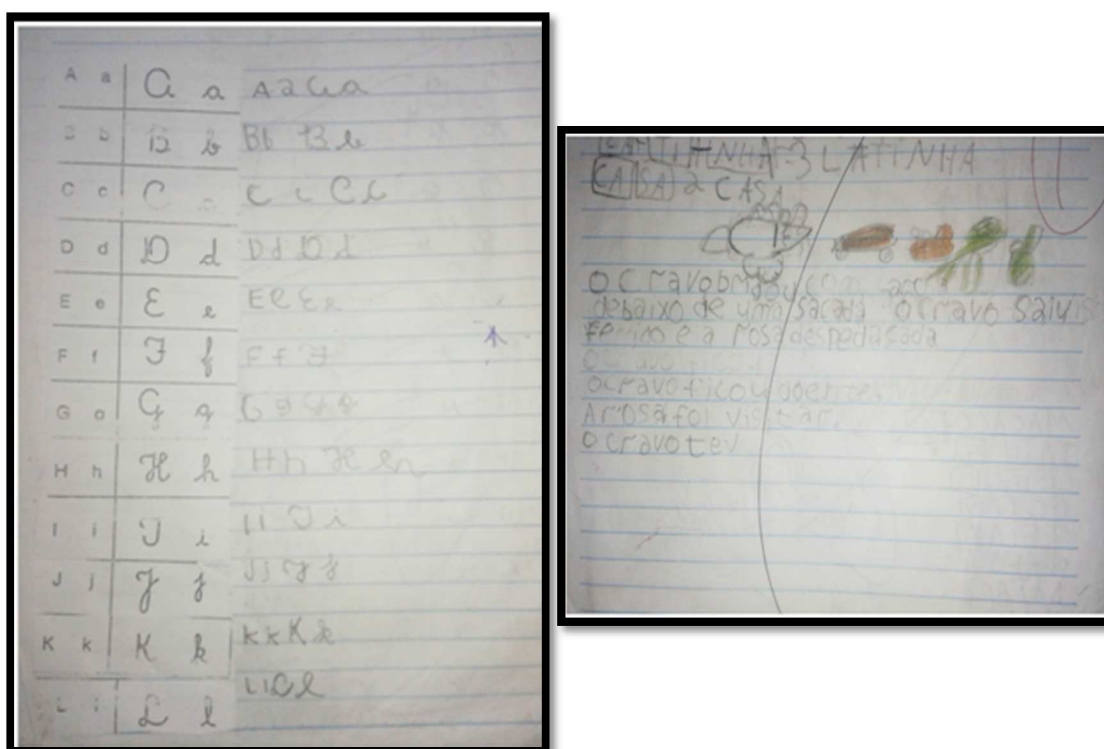 A a A a A a a a
B b B b Bb B b
C c C c C c C c
D d D d D d D d
E e E e E e E e
F f F f F f F
G g G g G g G g
H h H h H h H h
I i I i I i I i
J j J j J j J j
K k K k k k K k
L l L l L l
3 LATINHA
CA SA 2 CASA
O Cravo brigou com a
debaixo de uma sacada O Cravo Saiu
ferido e a rosa despedaçada
O cravo ficou doente
A rosa foi visitar
O cravo tev